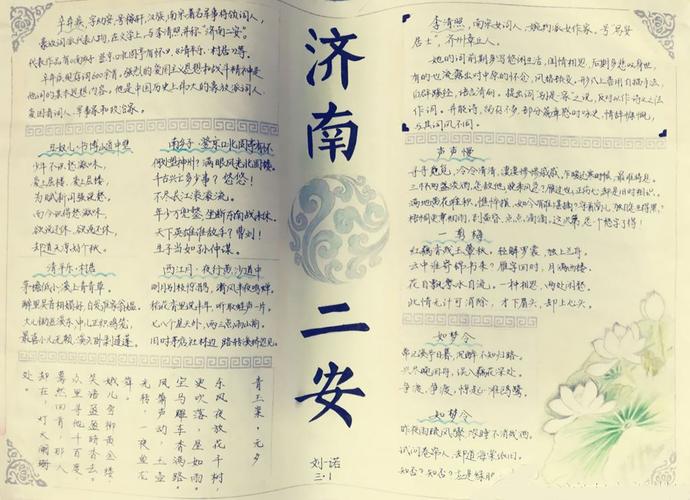 辛弃疾，字幼安，号稼轩，汉族，南宋著名军事将领词人，
豪放词派代表人物，在文学上，与李清照并称"济南二安"。
代表作品有《南乡子·登京口北固亭有怀》、《清平乐·村居》等。
辛弃疾现存词600余首，强烈的爱国主义思想和战斗精神是
他词的基本思想内容，他是中国历史上伟大的豪放派词人、
爱国者词人、军事家和政治家。
丑奴儿·书博山道中壁
少年不识愁滋味，
爱上层楼，
爱上层楼，
为赋新词强说愁。
而今识得愁滋味，
欲说还休，欲说还休，
却道天凉好个秋。
南乡子·登京口北固亭有怀
何处望神州？满眼风光北固楼。
千古兴亡多少事？悠悠！
不尽长江滚滚流。
年少万兜鍪，坐断东南战未休。
天下英雄谁敌手？曹刘！
生子当如孙仲谋。
清平乐·村居
茅檐低小，溪上青青草。
醉里吴音相媚好，白发谁家翁媪。
大儿锄豆溪东，中儿正织鸡笼。
最喜小儿无赖，溪头卧剥莲蓬。
西江月·夜行黄沙道中
明月别枝惊鹊，清风半夜鸣蝉。
稻花香里说丰年，听取蛙声一片。
七八个星天外，两三点雨山前。
旧时茅店社林边，路转溪桥忽见。
青玉案·元夕
东风夜放花千树
更吹落星如雨
宝马雕车香满路
凤箫声动玉壶
光转一夜鱼龙
舞
蛾儿雪柳黄金缕
笑语盈盈暗香去
众里寻他千百度
蓦然回首那人
却在灯火阑珊
处
济南二安
刘一诺
三.1
李清照，南宋女词人，婉约派女作家，号"易安
居士"，齐州章丘人。
她的词前期多写悠闲生活，闺情相思，后期多悲叹身世，
有的也流露出对中原的怀念，
语言清丽。提出词"别是家"之说，反对以作诗之法
作词。并能诗，留存不多，部分篇章感时咏史，情辞慷慨，
与其词风不同。
声声慢
寻寻觅觅，冷冷清清，凄凄惨惨戚戚。乍暖还寒时候，最难将息。
三杯两盏淡酒，怎敌他晚来风急？雁过也，正伤心，却是旧时相识。
满地黄花堆积，憔悴损，如今有谁堪摘？守着窗儿，独自怎生得黑？
梧桐更兼细雨，到黄昏，点点滴滴，这次第，怎一个愁字了得！
一剪梅
红藕香残玉簟秋，轻解罗裳，独上兰舟。
云中谁寄锦书来，雁字回时，月满西楼。
花自飘零水自流，一种相思，两处闲愁。
此情无计可消除，才下眉头，却上心头。
如梦令
常记溪亭日暮，沉醉不知归路。
兴尽晚回舟，误入藕花深处。
争渡，争渡，惊起一滩鸥鹭。
如梦令
昨夜雨疏风骤，浓睡不消残酒。
试问卷帘人，却道海棠依旧。
知否？知否？应是绿肥